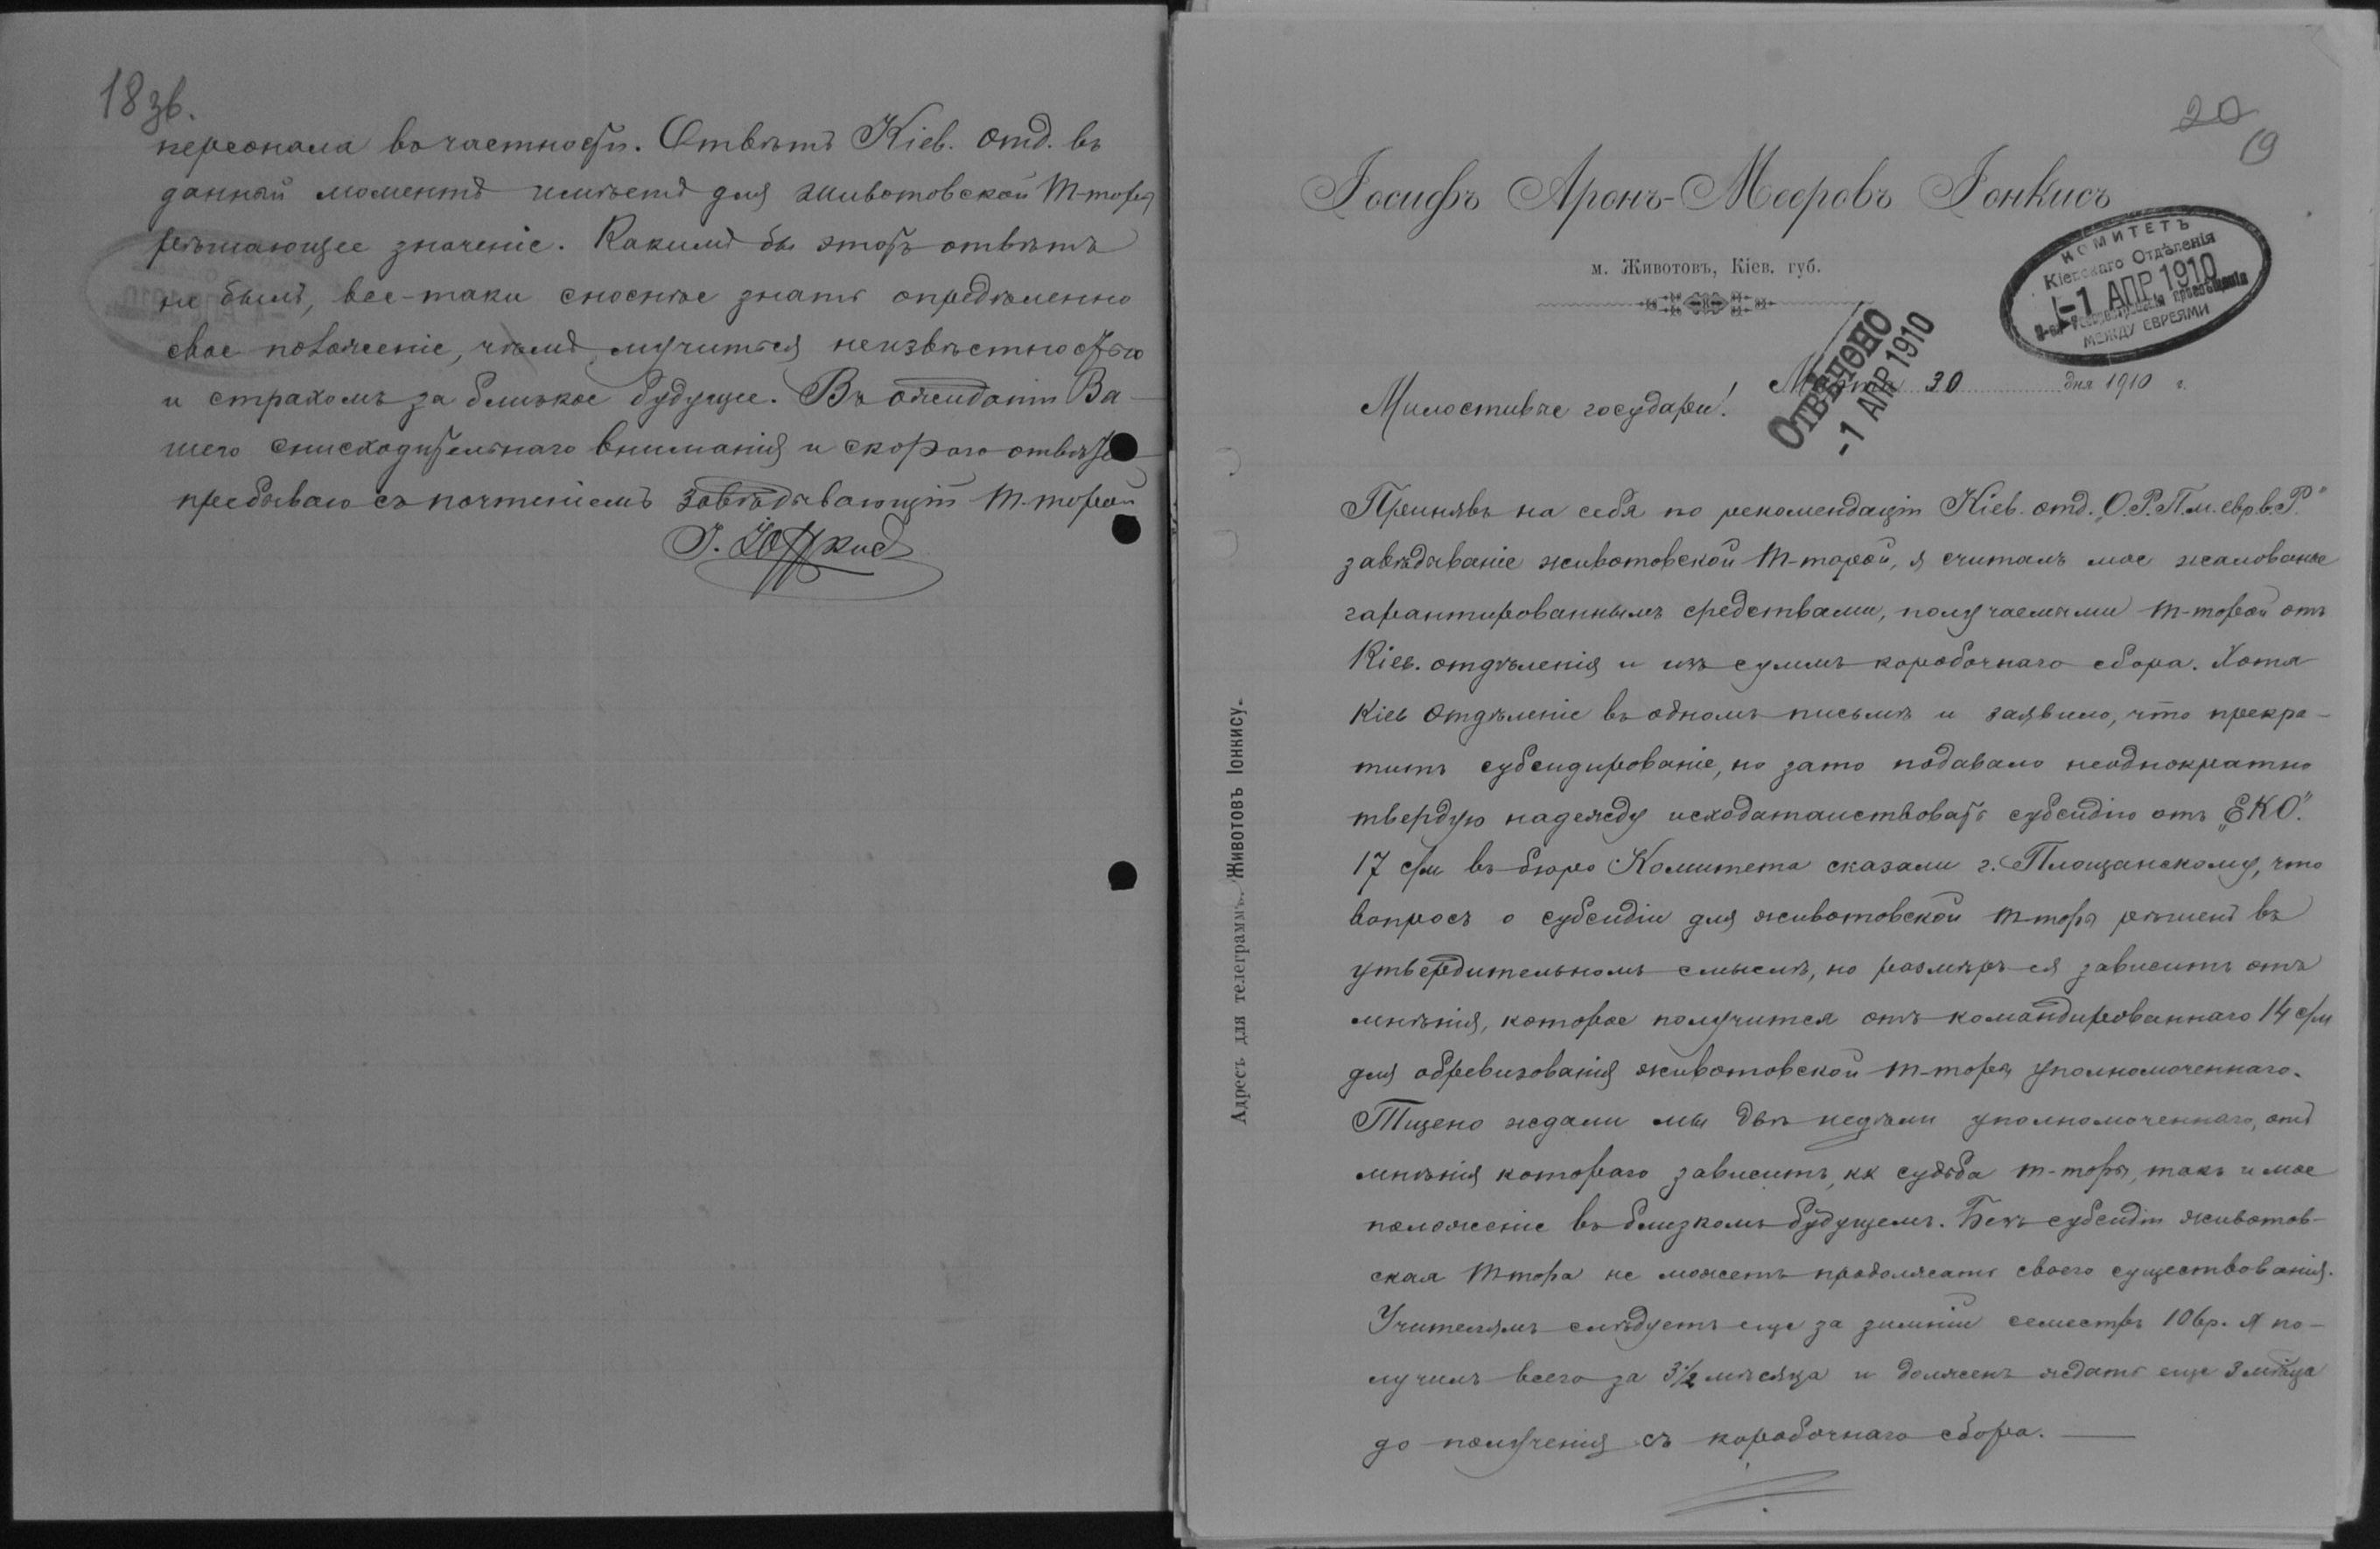 18 зв.
персонала въ частности. Отвѣтъ Кіев. отд. въ
данный моментъ имѣетъ для животовской т-торы
рѣшающее значеніе. Какимъ бы этотъ отвѣтъ
не былъ, все-таки сноснѣе знать опредѣленно
свое положеніе, чѣмъ мучиться неизвѣстностью
и страхомъ за близкое будущее. Въ ожиданіи Ва-
шего снисходительнаго вниманія и скораго отвѣта
пребываю съ почтеніемъ завѣдывающій т-торой
І. Іонкисъ
20
19
Іосифъ Аронъ-Мееровъ Іонкисъ
м. Животовъ, Кіев. губ.
КОМИТЕТЪ
Кіевскаго Отдѣленія
-1 АПР 1910
просвѣщенія
МЕЖДУ ЕВРЕЯМИ
ОТВѢЧЕНО
-1 АПР 1910
Марта 30 дня 1910 г.
Милостивые государи!
Принявъ на себя по рекомендаціи Кіев. отд. „О.Р.П.м.евр.в.Р."
завѣдываніе животовской т-торой, я считалъ мое жалованье
гарантированнымъ средствами, получаемыми т-торой отъ
Кіев. отдѣленія и изъ суммъ коробочнаго сбора. Хотя
Кіев Отдѣленіе въ одномъ письмѣ и заявило, что прекра-
титъ субсидированіе, но зато подавало неоднократно
твердую надежду исходатайствовать субсидію отъ „ЕКО."
17 с/м въ бюро Комитета сказали г. Площанскому, что
вопросъ о субсидіи для животовской т-торы рѣшенъ въ
утвердительномъ смыслѣ, но размѣръ ея зависитъ отъ
мнѣнія, которое получится отъ командированнаго 14 с/м
для обревизованія животовской т-торы уполномоченнаго.
Тщетно ждали мы двѣ недѣли уполномоченнаго, отъ
мнѣнія котораго зависитъ, кк судьба т-торы, такъ и мое
положеніе въ близкомъ будущемъ. Безъ субсидіи животов-
ская т-тора не можетъ продолжать своего существованія.
Учителямъ слѣдуетъ еще за зимній семестръ 106р. Я по-
лучилъ всего за 3½ мѣсяца и долженъ ждать еще 3 мѣсяца
до полученія съ коробочнаго сбора.
Адресъ для телеграммъ: Животовъ Іонкису.